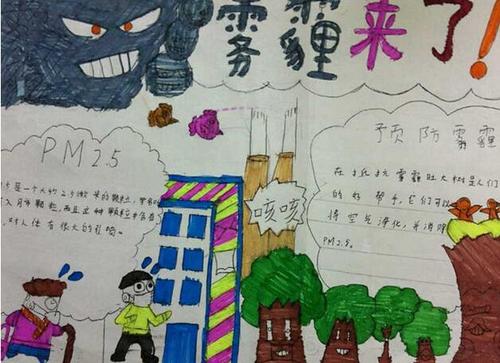 雾霾来了!
PM2.5
是一个大约2.5微米的颗粒,
入肺颗粒,而且这种颗粒中含有
对人体有很大的危害。
咳咳
预防雾霾
在抵抗雾霾时大树是人们
的好帮手,它们可以
将空气净化,并消除
PM2.5。